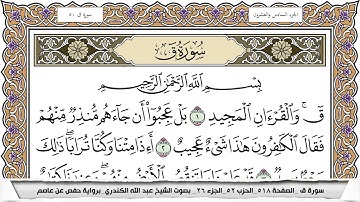 الجزء السادس والعشرون
سورة ق ٥٠
سُورَةُ قٓ
بِسْمِ ٱللَّهِ ٱلرَّحْمَٰنِ ٱلرَّحِيمِ
قٓ ۚ وَٱلْقُرْءَانِ ٱلْمَجِيدِ ١ بَلْ عَجِبُوٓا۟ أَن جَآءَهُم مُّنذِرٌ مِّنْهُمْ
فَقَالَ ٱلْكَٰفِرُونَ هَٰذَا شَىْءٌ عَجِيبٌ ٢ أَءِذَا مِتْنَا وَكُنَّا تُرَابًا ۖ ذَٰلِكَ
سورة ق _ الصفحة ٥١٨_ الحزب ٥٢_ الجزء ٢٦_ بصوت الشيخ عبد الله الكندري_ برواية حفص عن عاصم